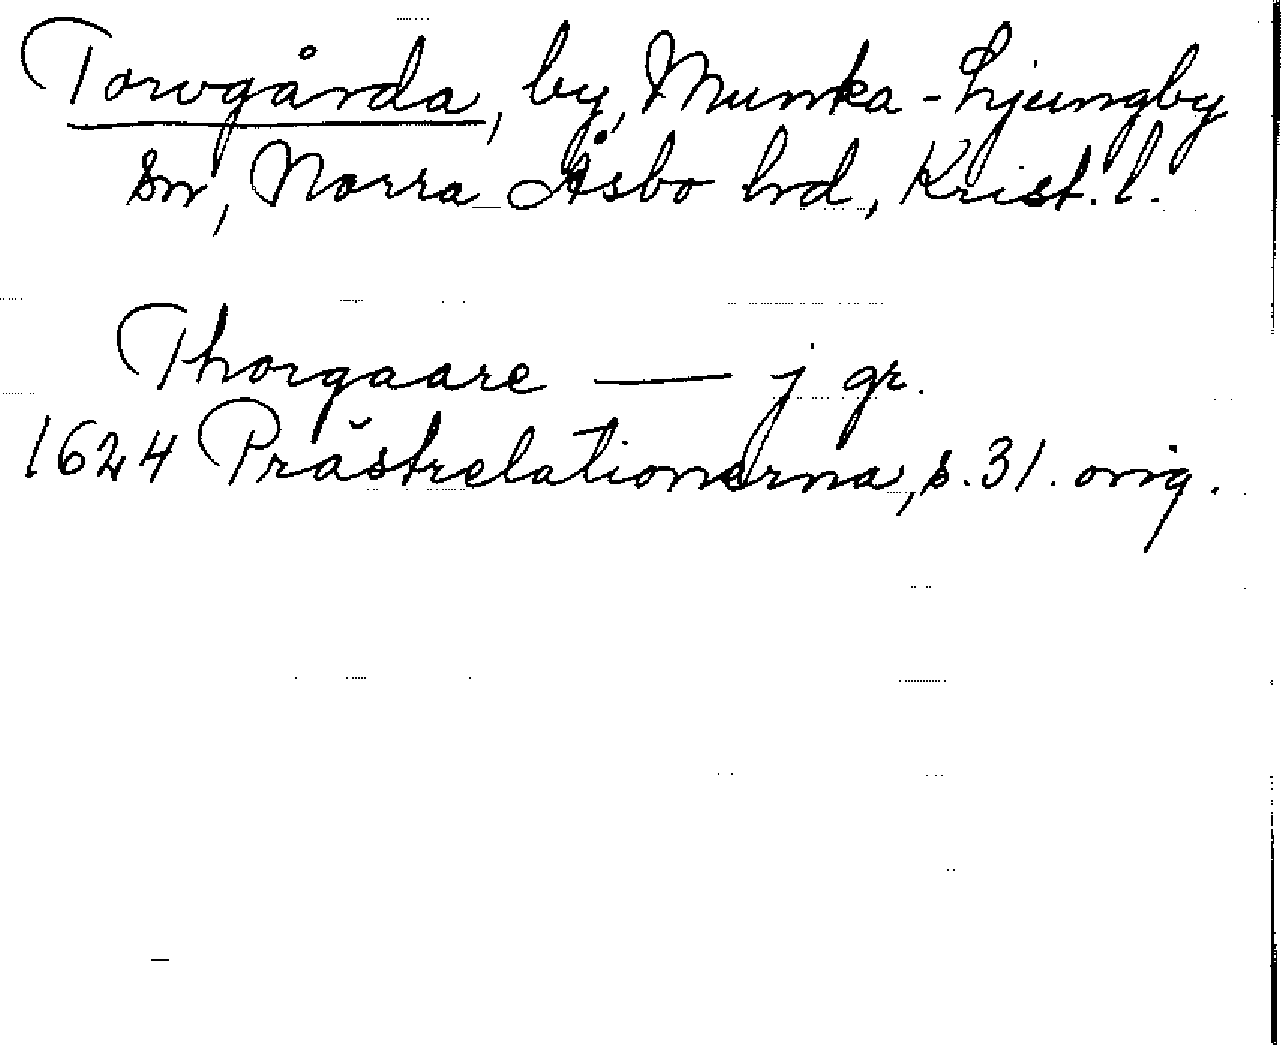 Torvgårda, by, Munka-Ljungby
sn, Norra Åsbo hd, Krist. l.
Thorgaare — j gr.
1624 Prästrelationerna, s. 31. orig.